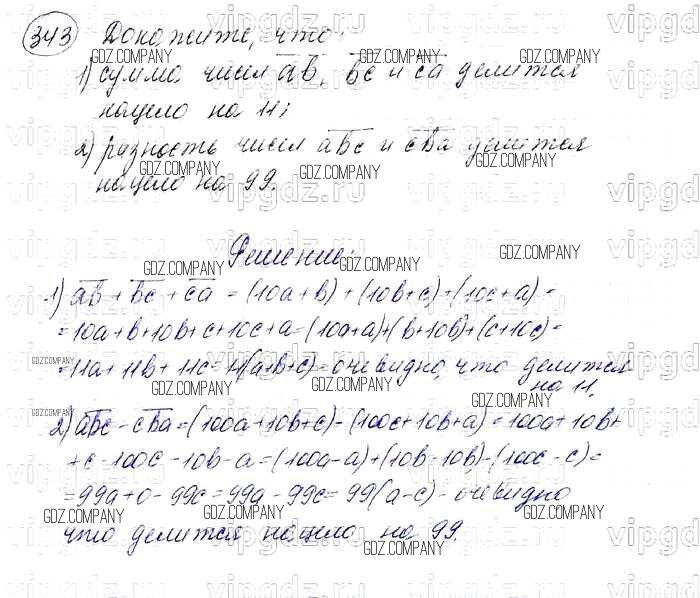 343 Докажите, что:
1) сумма чисел a̅b̅, b̅c̅ и c̅a̅ делится
нацело на 11;
2) разность чисел a̅b̅c̅ и c̅b̅a̅ делится
нацело на 99.
Решение:
1) a̅b̅ + b̅c̅ + c̅a̅ = (10a+b)+(10b+c)+(10c+a)=
=10a+b+10b+c+10c+a=(10a+a)+(b+10b)+(c+10c)=
=11a+11b+11c=11(a+b+c)-очевидно, что делится
на 11.
2) a̅b̅c̅ - c̅b̅a̅=(100a+10b+c)-(100c+10b+a)=100a+10b+
+c-100c-10b-a=(100a-a)+(10b-10b)-(100c-c)=
=99a+0-99c=99a-99c=99(a-c)-очевидно
что делится нацело на 99.
vipgdz.ru
GDZ.COMPANY